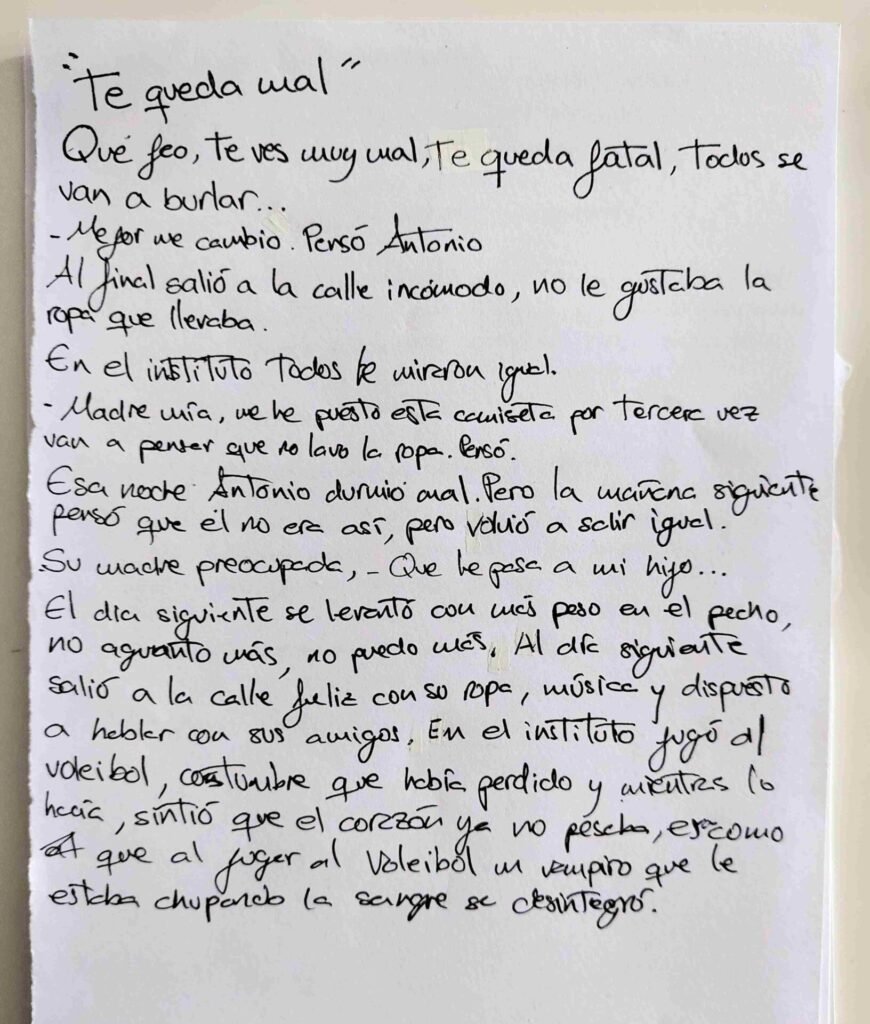 "Te queda mal"
Qué feo, te ves muy mal, te queda fatal, todos se
van a burlar...
- Mejor me cambio. Pensó Antonio
Al final salió a la calle incómodo, no le gustaba la
ropa que llevaba.
En el instituto todos le miraron igual.
- Madre mía, me he puesto esta camiseta por tercera vez
van a pensar que no lavo la ropa. Pensó.
Esa noche Antonio durmió mal. Pero la mañana siguiente
pensó que él no era así, pero volvió a salir igual.
Su madre preocupada, - Que le pasa a mi hijo...
El día siguiente se levantó con más peso en el pecho,
no aguanto más, no puedo más. Al día siguiente
salió a la calle feliz con su ropa, música y dispuesto
a hablar con sus amigos. En el instituto jugó al
voleibol, costumbre que había perdido y mientras lo
hacía, sintió que el corazón ya no pesaba, es como
que al jugar al voleibol un vampiro que le
estaba chupando la sangre se desintegró.